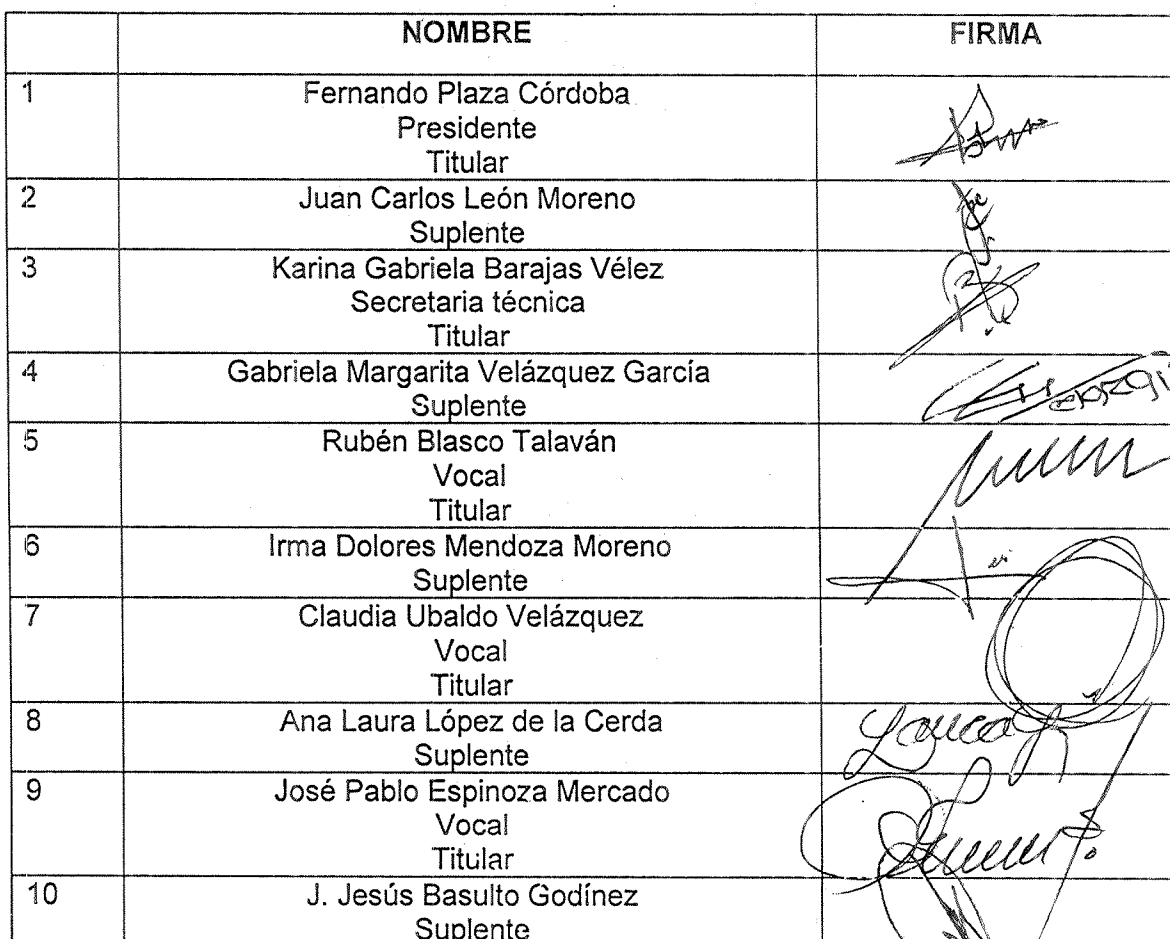 NOMBRE FIRMA
1 Fernando Plaza Córdoba
Presidente
Titular
2 Juan Carlos León Moreno
Suplente
3 Karina Gabriela Barajas Vélez
Secretaria técnica
Titular
4 Gabriela Margarita Velázquez García
Suplente
5 Rubén Blasco Talaván
Vocal
Titular
6 Irma Dolores Mendoza Moreno
Suplente
7 Claudia Ubaldo Velázquez
Vocal
Titular
8 Ana Laura López de la Cerda
Suplente
9 José Pablo Espinoza Mercado
Vocal
Titular
10 J. Jesús Basulto Godínez
Suplente